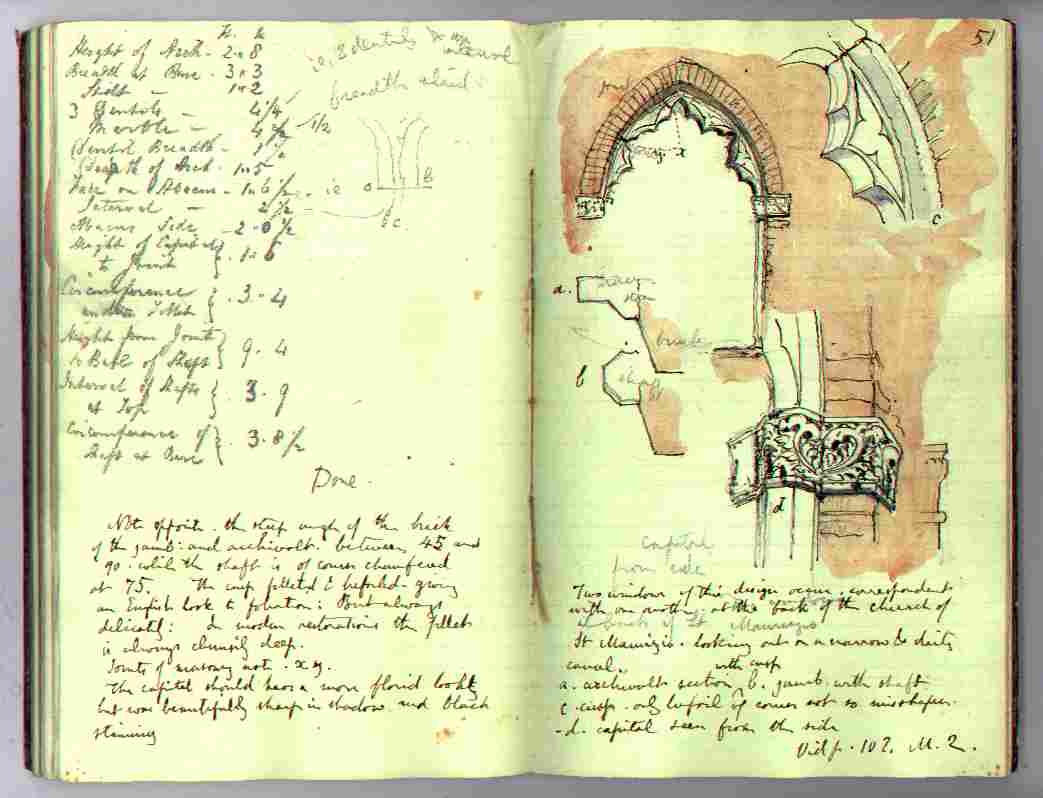 ft. in
Height of Arch - 2 . 8
Breadth at Base - 3 . 3
Stilt - 1 . 2
3 Dentils - 4 1/4
Marble - 4 1/2 - 1/2
(Dentil Breadth -
(Depth of Arch - 1 . 5
Face on Abacus - 1 . 6 1/2 . ie a b
Interval - 2 1/2
c
Abacus Side - 2 - 0 1/2
Height of Capital
to Joint } . 1 . 6
Circumference
under } . 3 . 4
Height from Joint
to Base of Shaft } 9 . 4
Interval of Shafts
at Top } . 3 . 9
Circumference of
Shaft at Base } . 3 . 8 1/2
ie, 3 dentils to an
interval
breadth
Done.
Note opposite . the steep angle of the brick
of the jamb: and archivolt. between 45 and
90 . while the shaft is of course chamfered
at 75. The cusp filleted & befoiled . giving
an English look to foliation: But always
delicately: In modern restorations the fillet
is always clumsily deep.
Joints of masonry note . x y.
The capital should have a more florid look
but was beautifully sharp in shadow and black
staining
51
y x
c
a.
brick
b
shaft
d
capital
from side
Two windows of this design occur, correspondent
with one another, at the back of the church of
back of St Maurizio
St Maurizio . looking out on a narrow & dirty
canal.
with cusp
a . archivolt section, b. jamb with shaft
c . cusp . only befoil of course not so misshapen.
- d. capital seen from the side
Vid p. 102. M. 2.